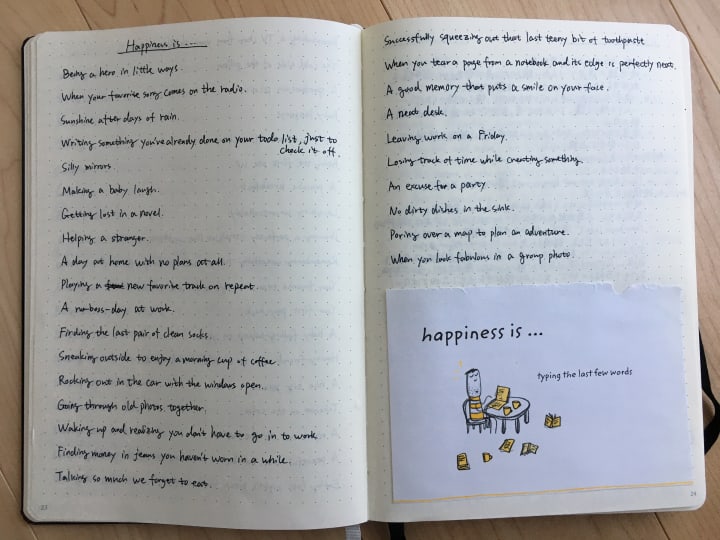 Happiness is ...
Being a hero in little ways.
When your favorite song comes on the radio.
Sunshine after days of rain.
Writing something you've already done on your todo list, just to
check it off.
Silly mirrors.
Making a baby laugh.
Getting lost in a novel.
Helping a stranger.
A day at home with no plans at all.
Playing a new favorite track on repeat.
A no-boss-day at work.
Finding the last pair of clean socks.
Sneaking outside to enjoy a morning cup of coffee.
Rocking out in the car with the windows open.
Going through old photos together.
Waking up and realizing you don't have to go in to work.
Finding money in jeans you haven't worn in a while.
Talking so much we forget to eat.
23
Successfully squeezing out that last teeny bit of toothpaste
When you tear a page from a notebook and its edge is perfectly neat.
A good memory that puts a smile on your face.
A neat desk.
Leaving work on a Friday.
Losing track of time while creating something.
An excuse for a party.
No dirty dishes in the sink.
Poring over a map to plan an adventure.
When you look fabulous in a group photo.
happiness is ...
typing the last few words
24